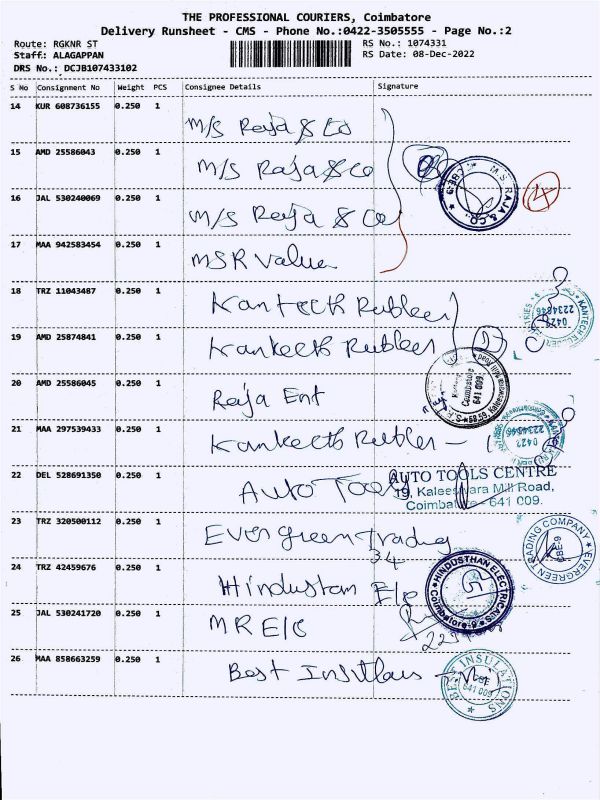 THE PROFESSIONAL COURIERS, Coimbatore
Delivery Runsheet - CMS - Phone No.:0422-3505555 - Page No.:2
Route: RGKNR ST RS No.: 1074331
Staff: ALAGAPPAN RS Date: 08-Dec-2022
DRS No.: DCJB107433102
S No Consignment No Weight PCS Consignee Details Signature
14 KUR 608736155 0.250 1
M/S Raja & Co
15 AMD 25586043 0.250 1
M/S Raja & Co
16 JAL 530240069 0.250 1
M/S Raja & Co
M.S. RAJA & CO. CBE-9
4
17 MAA 942583454 0.250 1
MSR Value
18 TRZ 11043487 0.250 1
Kanteeth Rubber
0422 2234846
19 AMD 25874841 0.250 1
Kankeeth Rubber
20 AMD 25586045 0.250 1
Raja Ent
Coimbatore 641 009.
21 MAA 297539433 0.250 1
Kankeeth Rubber -
0422 2234846
22 DEL 528691350 0.250 1
Auto Tools
AUTO TOOLS CENTRE
19, Kaleeswara Mill Road,
Coimbatore - 641 009.
23 TRZ 320500112 0.250 1
Evergreen Trading
34
EVERGREEN TRADING COMPANY CBE-9
24 TRZ 42459676 0.250 1
Hindustan E/c
HINDUSTHAN ELECTRICALS Coimbatore-9
25 JAL 530241720 0.250 1
M R E/C
26 MAA 858663259 0.250 1
Best Insutlaus
BEST INSULATIONS CBE 641 009